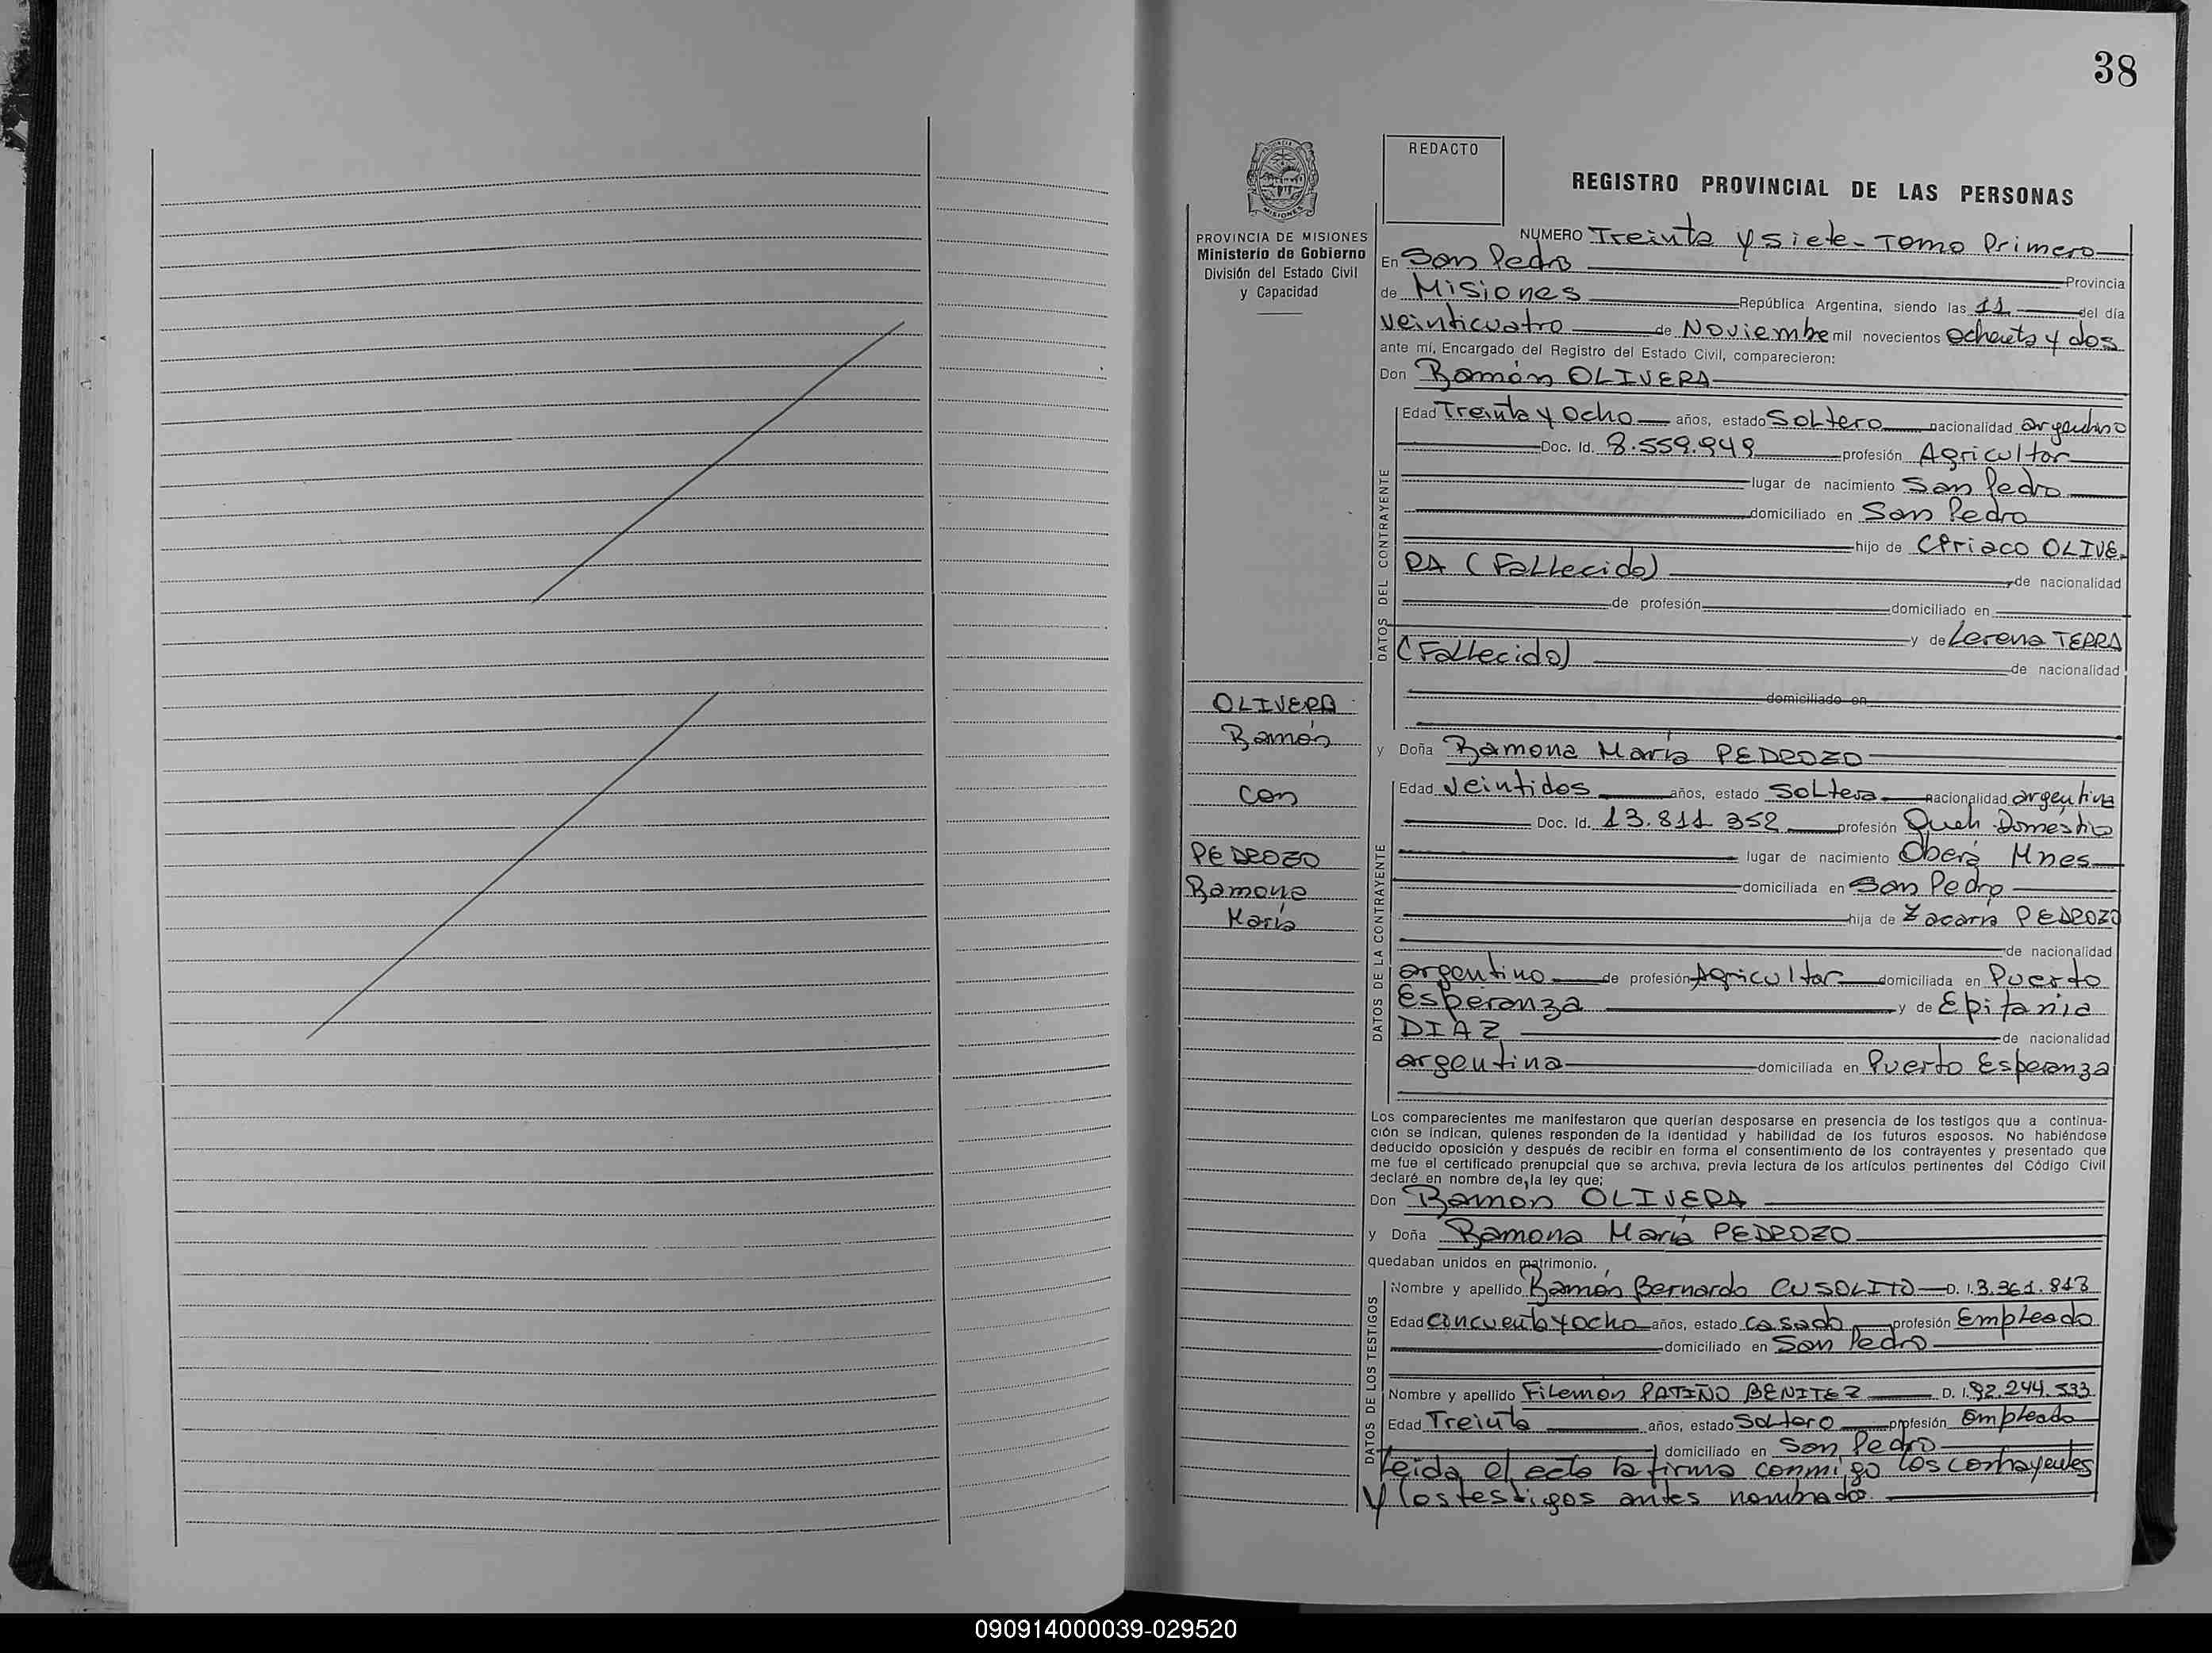 38
REDACTO
REGISTRO PROVINCIAL DE LAS PERSONAS
PROVINCIA DE MISIONES
Ministerio de Gobierno
División del Estado Civil
y Capacidad
NUMERO Treinta y siete - Tomo Primero
En San Pedro Provincia
de Misiones República Argentina, siendo las 11 del día
veinticuatro de Noviembre mil novecientos ochenta y dos
ante mí, Encargado del Registro del Estado Civil, comparecieron:
Don Ramón OLIVERA
DATOS DEL CONTRAYENTE
Edad Treinta y ocho años, estado Soltero nacionalidad argentino
Doc. Id. 8.559.949 profesión Agricultor
lugar de nacimiento San Pedro
domiciliado en San Pedro
hijo de CPriaco OLIVE-
RA (Fallecido) de nacionalidad
de profesión domiciliado en
y de Lorena TERRA
(Fallecida) de nacionalidad
domiciliado en
OLIVERA
Ramón
con
PEDROZO
Ramona
María
y Doña Ramona María PEDROZO
DATOS DE LA CONTRAYENTE
Edad veintidos años, estado Soltera nacionalidad argentina
Doc. Id. 13.811.352 profesión Queh. Doméstico
lugar de nacimiento Oberá Mnes
domiciliada en San Pedro
hija de Zacaría PEDROZO
de nacionalidad
argentino de profesión Agricultor domiciliada en Puerto
Esperanza y de Epifania
DIAZ de nacionalidad
argentina domiciliada en Puerto Esperanza
Los comparecientes me manifestaron que querían desposarse en presencia de los testigos que a continua-
ción se indican, quienes responden de la identidad y habilidad de los futuros esposos. No habiéndose
deducido oposición y después de recibir en forma el consentimiento de los contrayentes y presentado que
me fue el certificado prenupcial que se archiva, previa lectura de los artículos pertinentes del Código Civil
declaré en nombre de la ley que:
Don Ramón OLIVERA
y Doña Ramona María PEDROZO
quedaban unidos en matrimonio.
DATOS DE LOS TESTIGOS
Nombre y apellido Ramón Bernardo CUSOLITO D. I. 3.361.813
Edad cincuenta y ocho años, estado casado profesión Empleado
domiciliado en San Pedro
Nombre y apellido Filemon PATIÑO BENITEZ D. I. 92.244.533
Edad Treinta años, estado Soltero profesión empleado
domiciliado en San Pedro
Leida el acta la firma conmigo los contrayentes
y los testigos antes nombrados.
090914000039-029520